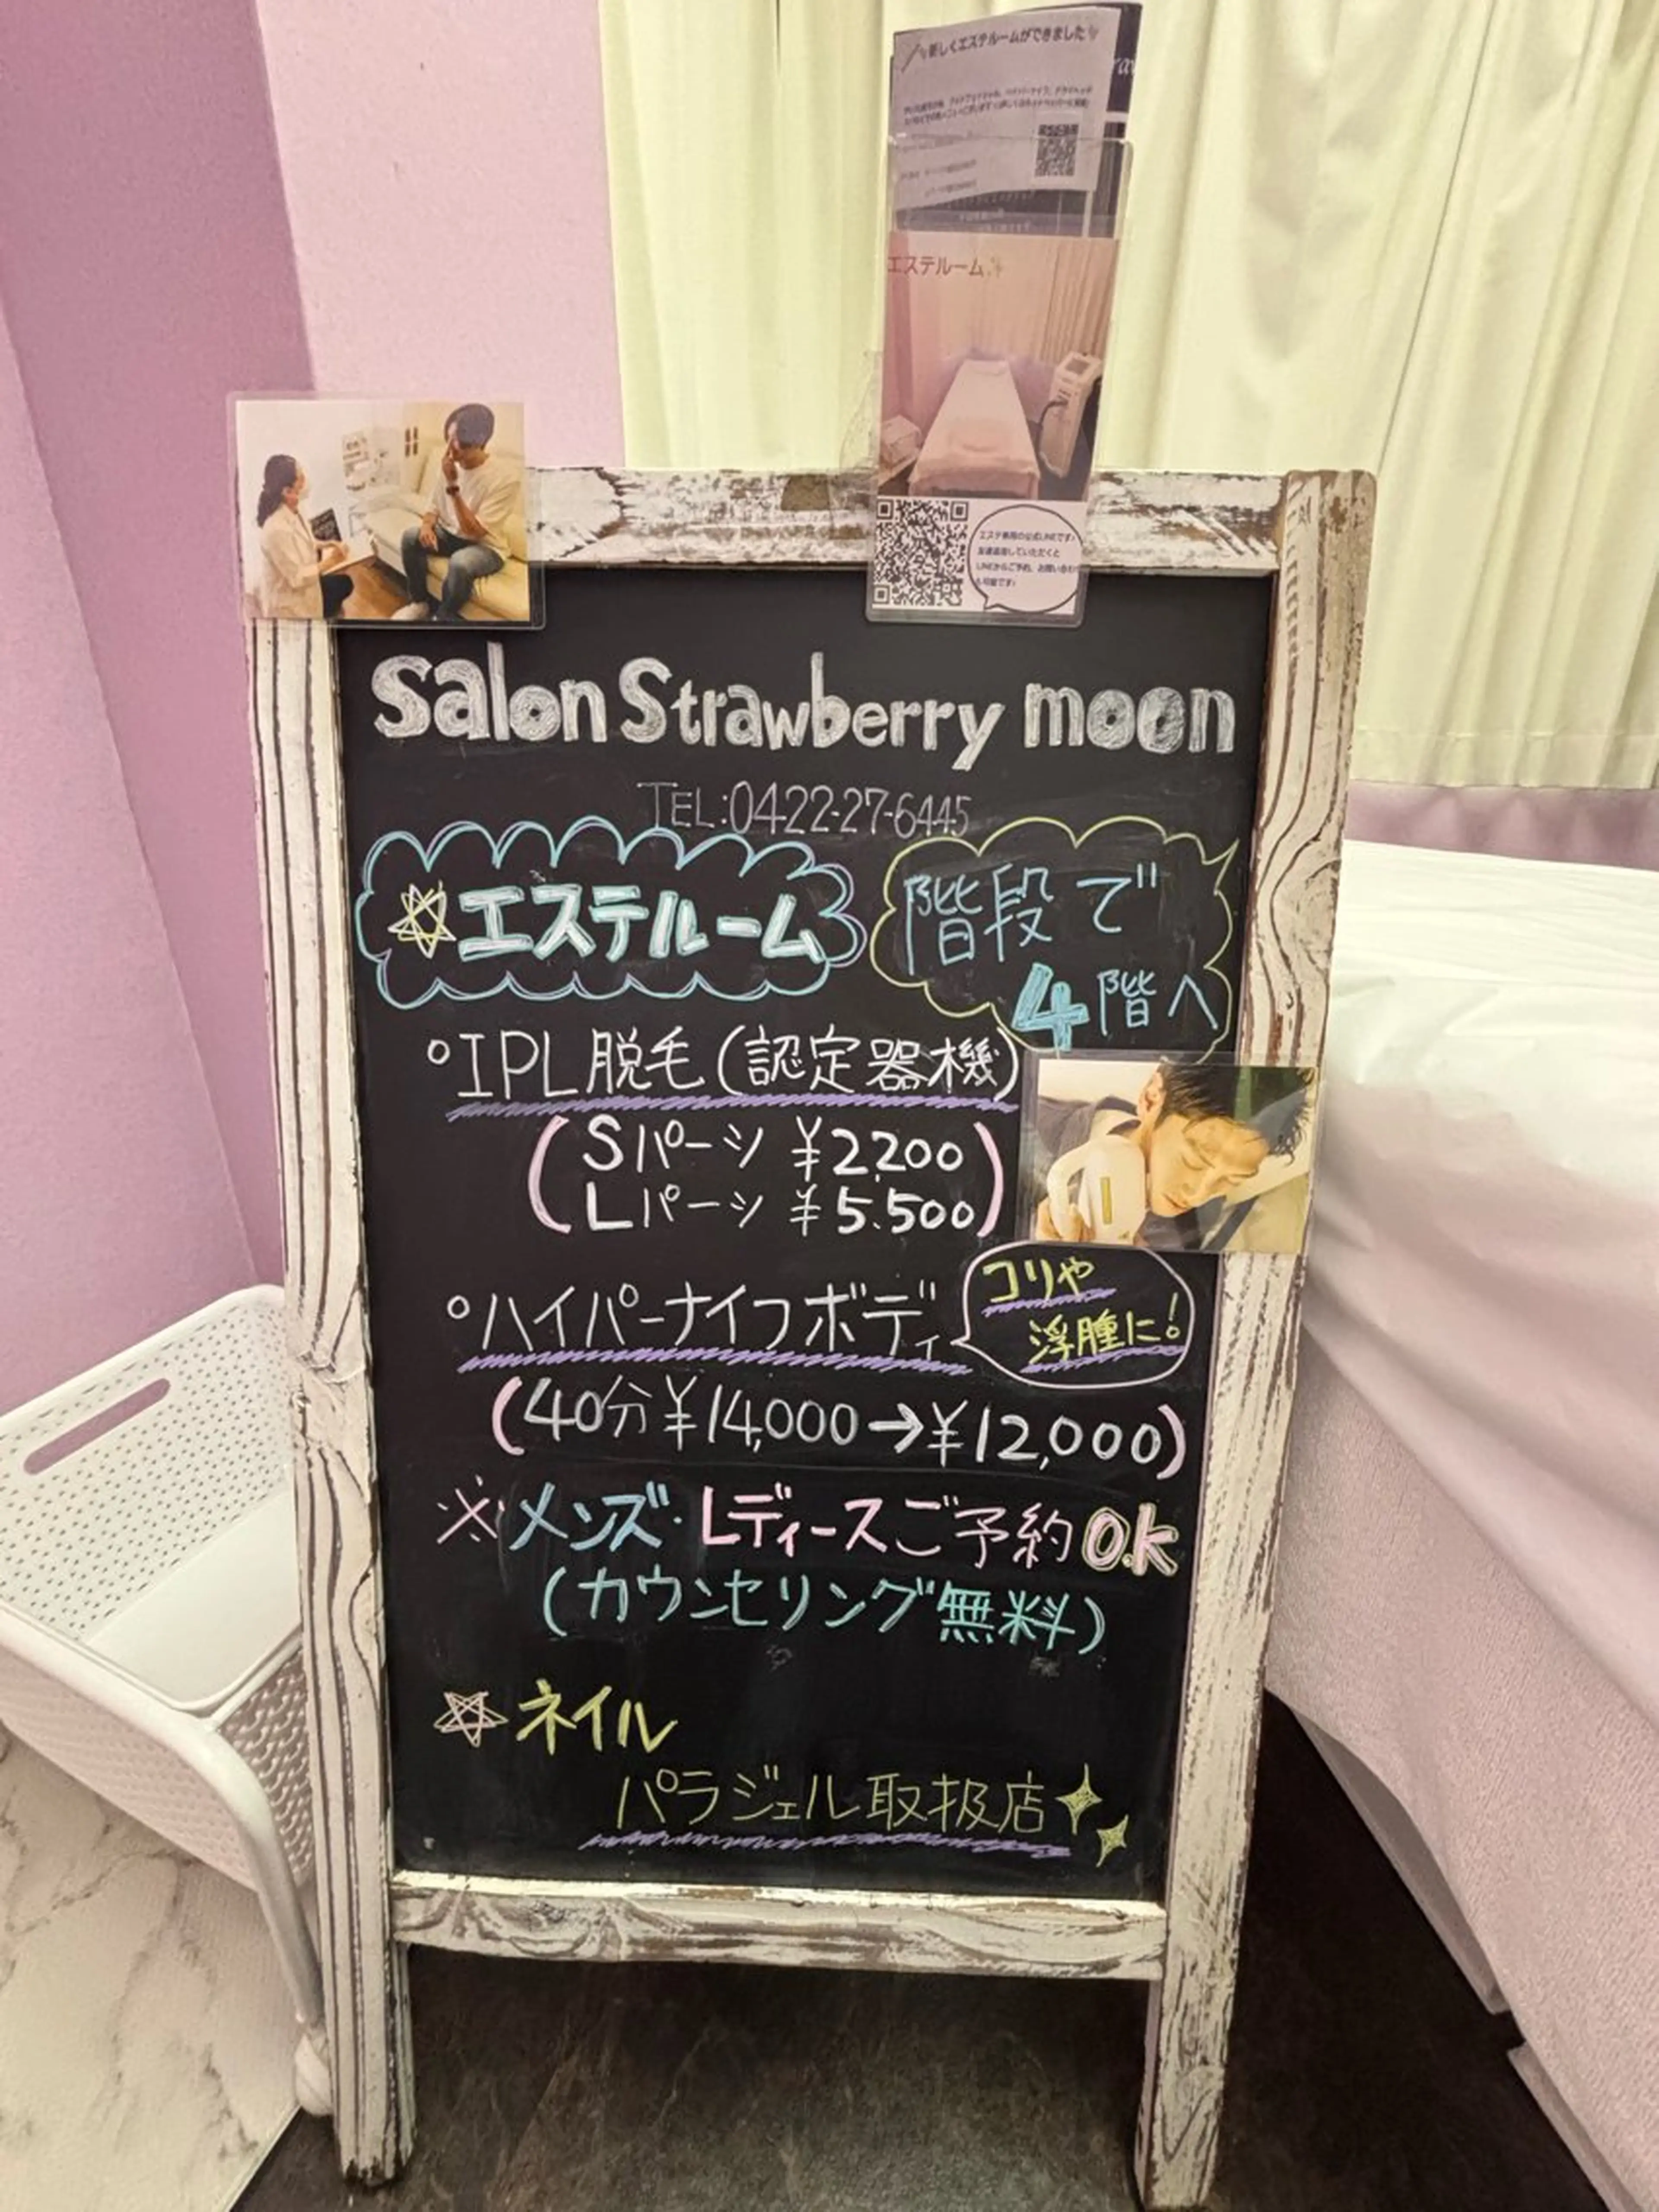 新しくエステルームができました
エステルーム
エステ専用の公式LINEです!
友達追加していただくと
LINEからご予約、お問い合わせ
も可能です!
Salon Strawberry moon
TEL:0422-27-6445
☆エステルーム
階段で
4階へ
°IPL脱毛(認定器機)
(Sパーツ ¥2,200
Lパーツ ¥5.500)
°ハイパーナイフボディ
コリや
浮腫に!
(40分¥14,000→¥12,000)
※メンズ・Lディースご予約O.K
(カウンセリング無料)
☆ネイル
パラジェル取扱店